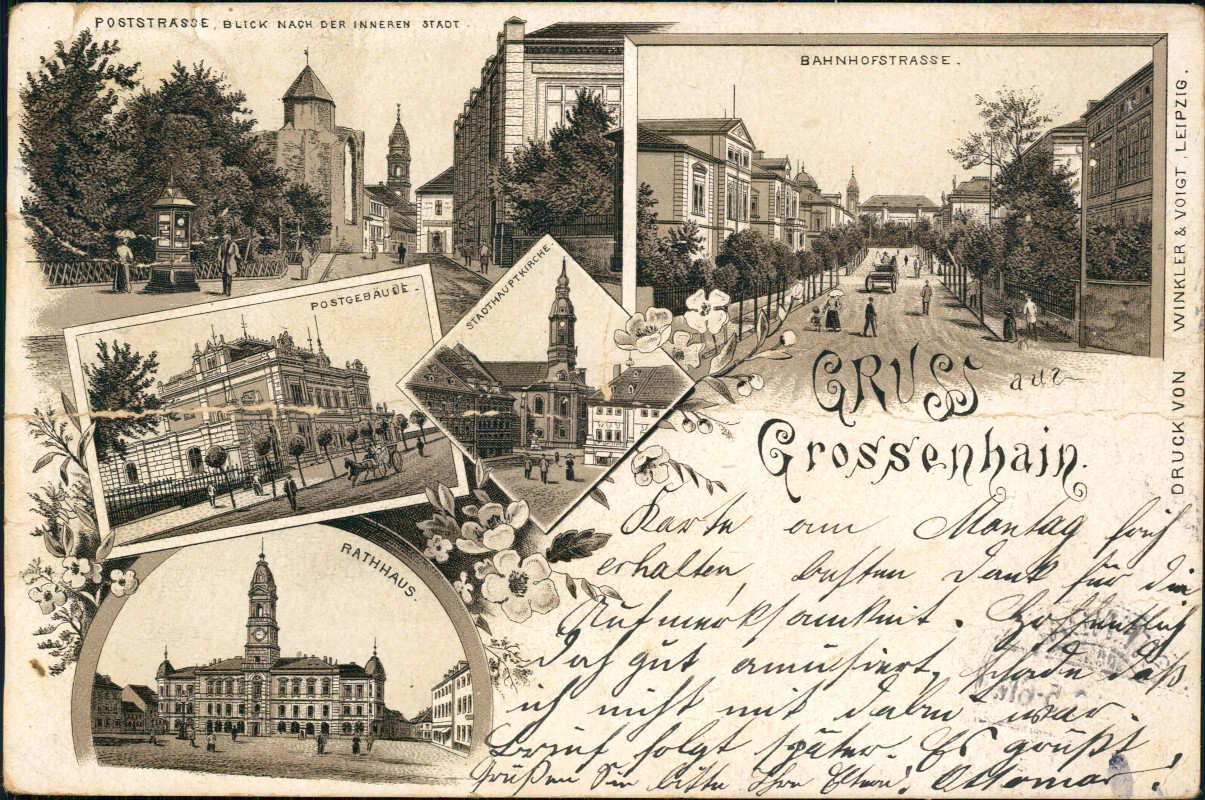 POSTSTRASSE, BLICK NACH DER INNEREN STADT.
BAHNHOFSTRASSE.
POSTGEBÄUDE.
STADTHAUPTKIRCHE.
RATHHAUS.
GRUSS aus
Grossenhain.
DRUCK VON WINKLER & VOIGT, LEIPZIG.
Karte am Montag früh
erhalten, besten Dank für die
Aufmerksamkeit. Hoffentlich
doch gut amüsiert, schade daß
ich nicht mit dabei war.
Brief folgt später. Es grüßt
Grüßen Sie bitte Ihre Eltern! Ottomar!